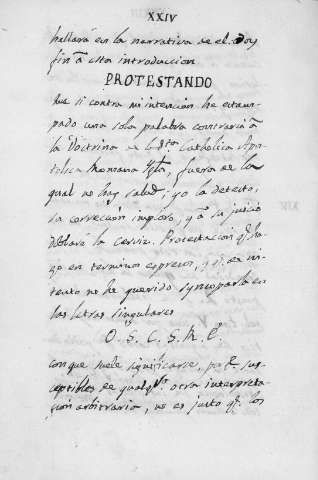 XXIV
hallará en la narrativa de el. Doy
fin â esta introduccion
PROTESTANDO
Que si contra mi intencion he estam-
pado una sola palabra contraria â
la Doctrina de la Sta Catholica Apo-
tolica Romana Yglª, fuera de la
qual no hay salud; yo la detesto,
su correccion imploro, y â su juicio
doblaré la Cerviz. Protestacion q̃ ha-
go en terminos expresos, y q̃ de in-
tento no he querido syncoparla en
las letras singulares
O. S. C. S. R. E.
con que suele significarse, por q̃ sus-
ceptibles de qualqª. otra interpreta-
cion arbitraria, no es justo q̃. los